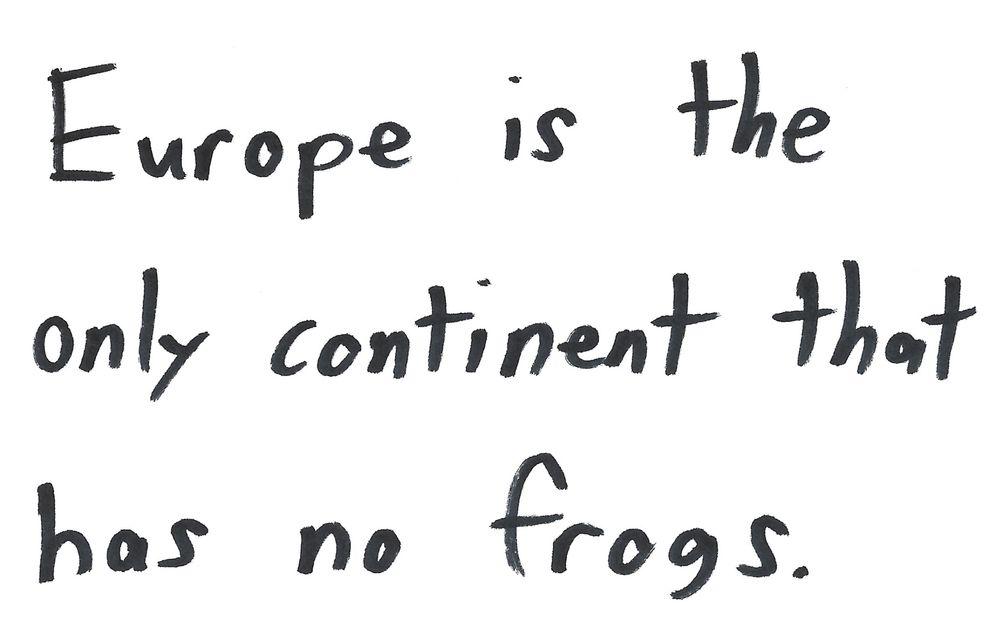 Europe is the
only continent that
has no frogs.